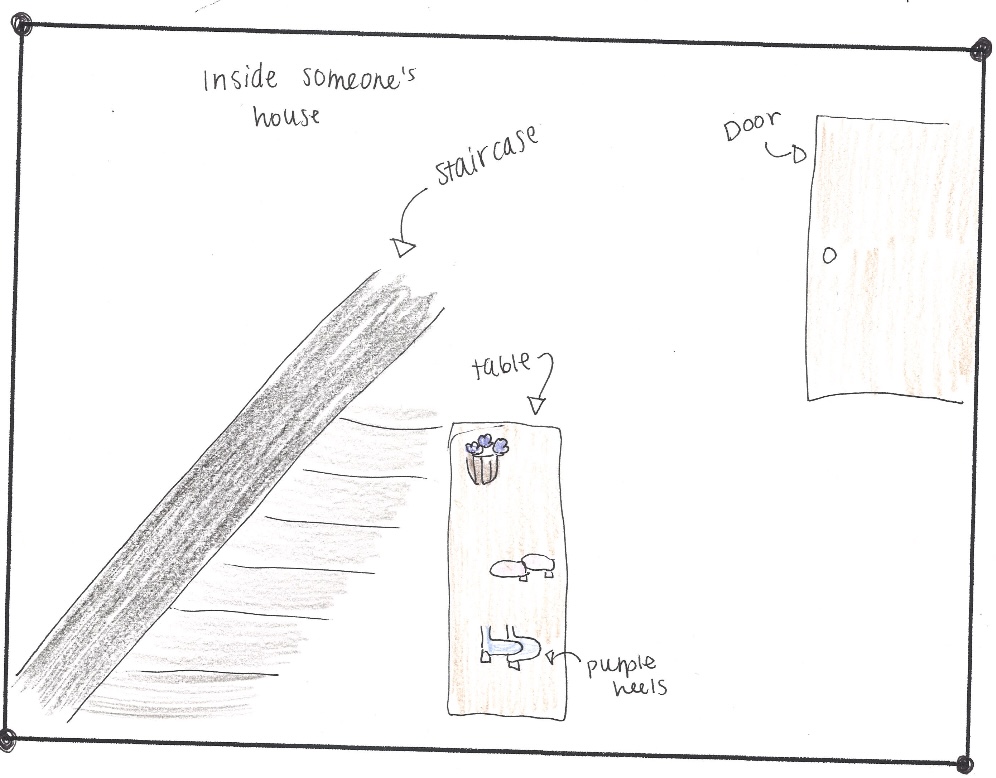 Inside someone's
house
staircase
Door
table
purple
heels